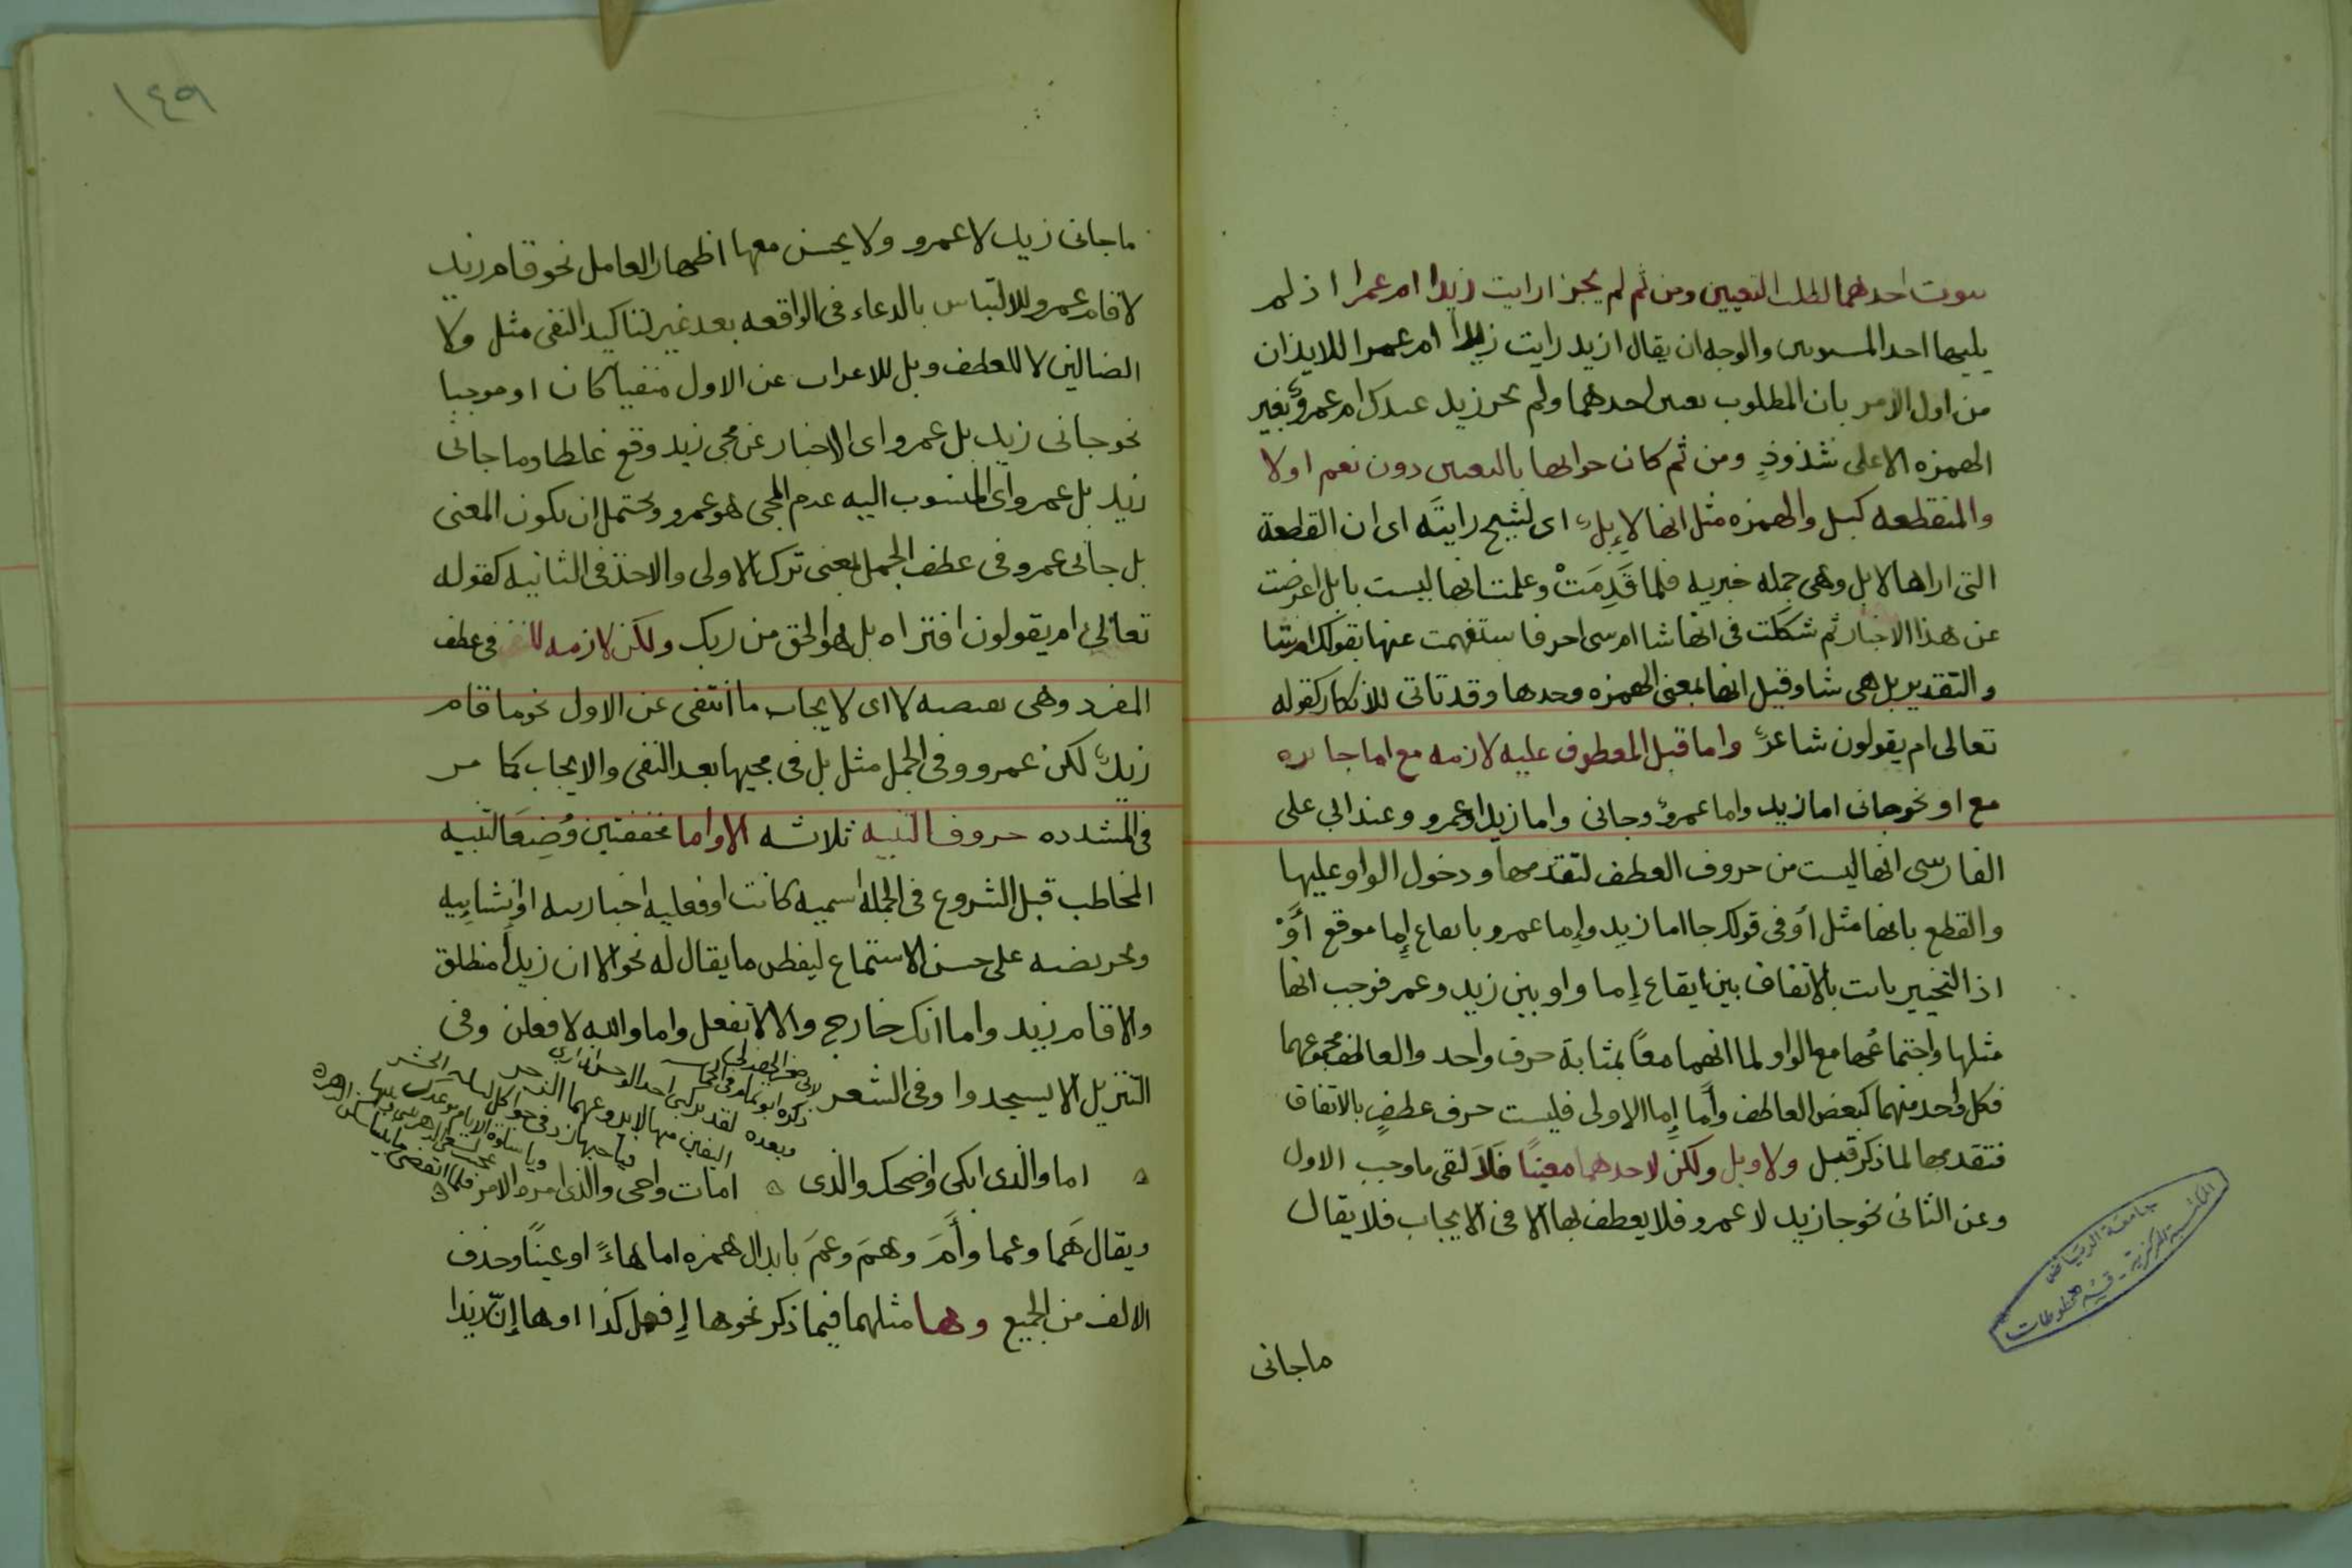 ثبوت احدهما لطلب التعيين ومن ثم لم يجز ارايت زيدا ام عمرا اذ لم
يليها احد المستويين والوجه ان يقال ازيد رايت زيدا ام عمرا للايذان
من اول الامر بان المطلوب تعيين احدهما ولم يجز زيد عندك ام عمروٌ بغير
الهمزه الا على شذوذٍ ومن ثم كان جوابها بالتعيين دون نعم او لا
والمنقطعه كبل والهمزه مثل انها لإبلٌ اى لشبح رايتَه اى ان القطعة
التى اراها لابل وهى جمله خبريه فلما قَدِمَتْ وعلمت انها ليست بابل اعرضت
عن هذا الاخبار ثم شككت فى انها شا ام شى اخر فاستفهمت عنها بقولك ام شا
والتقدير بل هى شا وقيل انها بمعنى الهمزه وحدها وقد تاتى للانكار كقوله
تعالى ام يقولون شاعرٌ واما قبل المعطوف عليه لازمه مع اما جايزه
مع او نحو جانى اما زيد واما عمروٌ وجانى واما زيد او عمرو وعند ابى على
الفارسى انها ليست من حروف العطف لتقدمها ودخول الواو عليها
والقطع بانها مثل أو فى قولك جا اما زيد وإما عمرو بايقاع إِما موقع أَوْ
اذ التخيير بابت بالاتفاق بين ايقاع إِما واو بين زيد وعمر فوجب انها
مثلها واجتماعُها مع الواو لما انهما معًا بمثابة حرف واحد والعاطف مجموعهما
فكل واحد منهما كبعض العاطف وأَما إِما الاولى فليست حرف عطفٍ بالاتفاق
فتقدمها لما ذكر قبل ولا وبل ولكن لاحدهما معينًا فَلاَ لنفى ما وجب الاول
وعن الثانى نحو جا زيد لا عمرو فلا يعطف بها الا فى الايجاب فلا يقال
ما جانى
جامعة الرياض
المكتبة المركزية - قسم المخطوطات
١٤٩
ما جانى زيد لا عمرو ولا يحسن معها اظهار العامل نحو قام زيد
لا قام عمرو للالتباس بالدعاء فى الواقعه بعد غير لتاكيد النفى مثل ولا
الضالين لا للعطف وبل للاعراب عن الاول منفيا كان او موجبا
نحو جانى زيد بل عمرو اى الاخبار عن مجى زيد وقع غلطا وما جانى
زيد بل عمرو اى المنسوب اليه عدم المجى هو عمرو ويحتمل ان يكون المعنى
بل جانى عمرو فى عطف الجمل بمعنى ترك الاولى والاخذ فى الثانيه كقوله
تعالى ام يقولون افتراه بل هو الحق من ربك ولكن لازمه للنفى فى عطف
المفرد وهى نقيضه لا اى لايجاب ما انتفى عن الاول نحو ما قام
زيدٌ لكن عمرو وفى الجمل مثل بل فى مجيها بعد النفى والايجاب كما مر
فى المشدده حروف التنبيه ثلاثه الا واما مخففتين وُضِعَا لتنبيه
المخاطب قبل الشروع فى الجمله اسميه كانت او فعليه اخباريه او انشاييه
وتحريضه على حسن الاستماع ليفطن ما يقال له نحو الا ان زيدا منطلق
والا قام زيد واما انك خارج والا لا تفعل واما والله لافعلن وفى
التنزيل الا يسجدوا وفى الشعر
لابى صخر الهذلى
ذكره ابو تمام فى الحماسه
وبعده لقد تركتنى احسد الوحش ان ارى
اليفين منها لا يروعهما الذعر
فيا حبها زدنى جوى كل ليله
ويا سلوة الايام موعدك الحشر
عجبت لسعى الدهر بينى وبينها
فلما انقضى ما بيننا سكن الدهر
اما والذى ابكى واضحك والذى ه امات واحى والذى امره الامر ه
ويقال هَما وعما وأَمَ وهمَ وعمَ بابدال همزه اما هاءً او عينًا وحذف
الالف من الجميع وها مثلهما فيما ذكر نحو ها إِفعل كذا او ها إِنّ زيدا